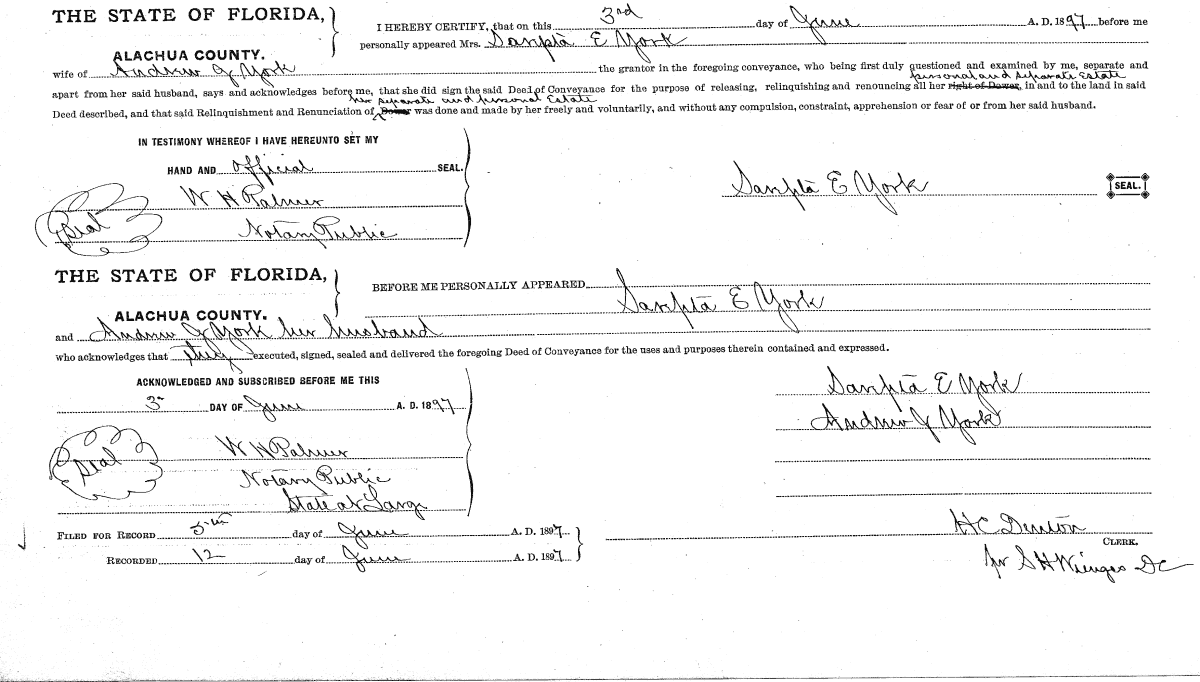 THE STATE OF FLORIDA,
ALACHUA COUNTY.
I HEREBY CERTIFY, that on this 3rd day of June A. D. 1897 before me
personally appeared Mrs. Sanpta E York
wife of Andrew J York the grantor in the foregoing conveyance, who being first duly questioned and examined by me, separate and
personal and separate Estate
apart from her said husband, says and acknowledges before me, that she did sign the said Deed of Conveyance for the purpose of releasing, relinquishing and renouncing all her right of Dower, in and to the land in said
her separate and personal Estate
Deed described, and that said Relinquishment and Renunciation of Dower was done and made by her freely and voluntarily, and without any compulsion, constraint, apprehension or fear of or from her said husband.
IN TESTIMONY WHEREOF I HAVE HEREUNTO SET MY
HAND AND official SEAL.
W H Palmer
Seal
Notary Public
Sanpta E York SEAL.
THE STATE OF FLORIDA,
ALACHUA COUNTY.
BEFORE ME PERSONALLY APPEARED Sanpta E York
and Andrew J York her husband
who acknowledges that they executed, signed, sealed and delivered the foregoing Deed of Conveyance for the uses and purposes therein contained and expressed.
ACKNOWLEDGED AND SUBSCRIBED BEFORE ME THIS
3 DAY OF June A. D. 1897
W H Palmer
Seal
Notary Public
State at Large
Sanpta E York
Andrew J York
FILED FOR RECORD 5th day of June A. D. 1897
RECORDED 12 day of June A. D. 1897
H C Denton
CLERK.
per S H Wienges DC